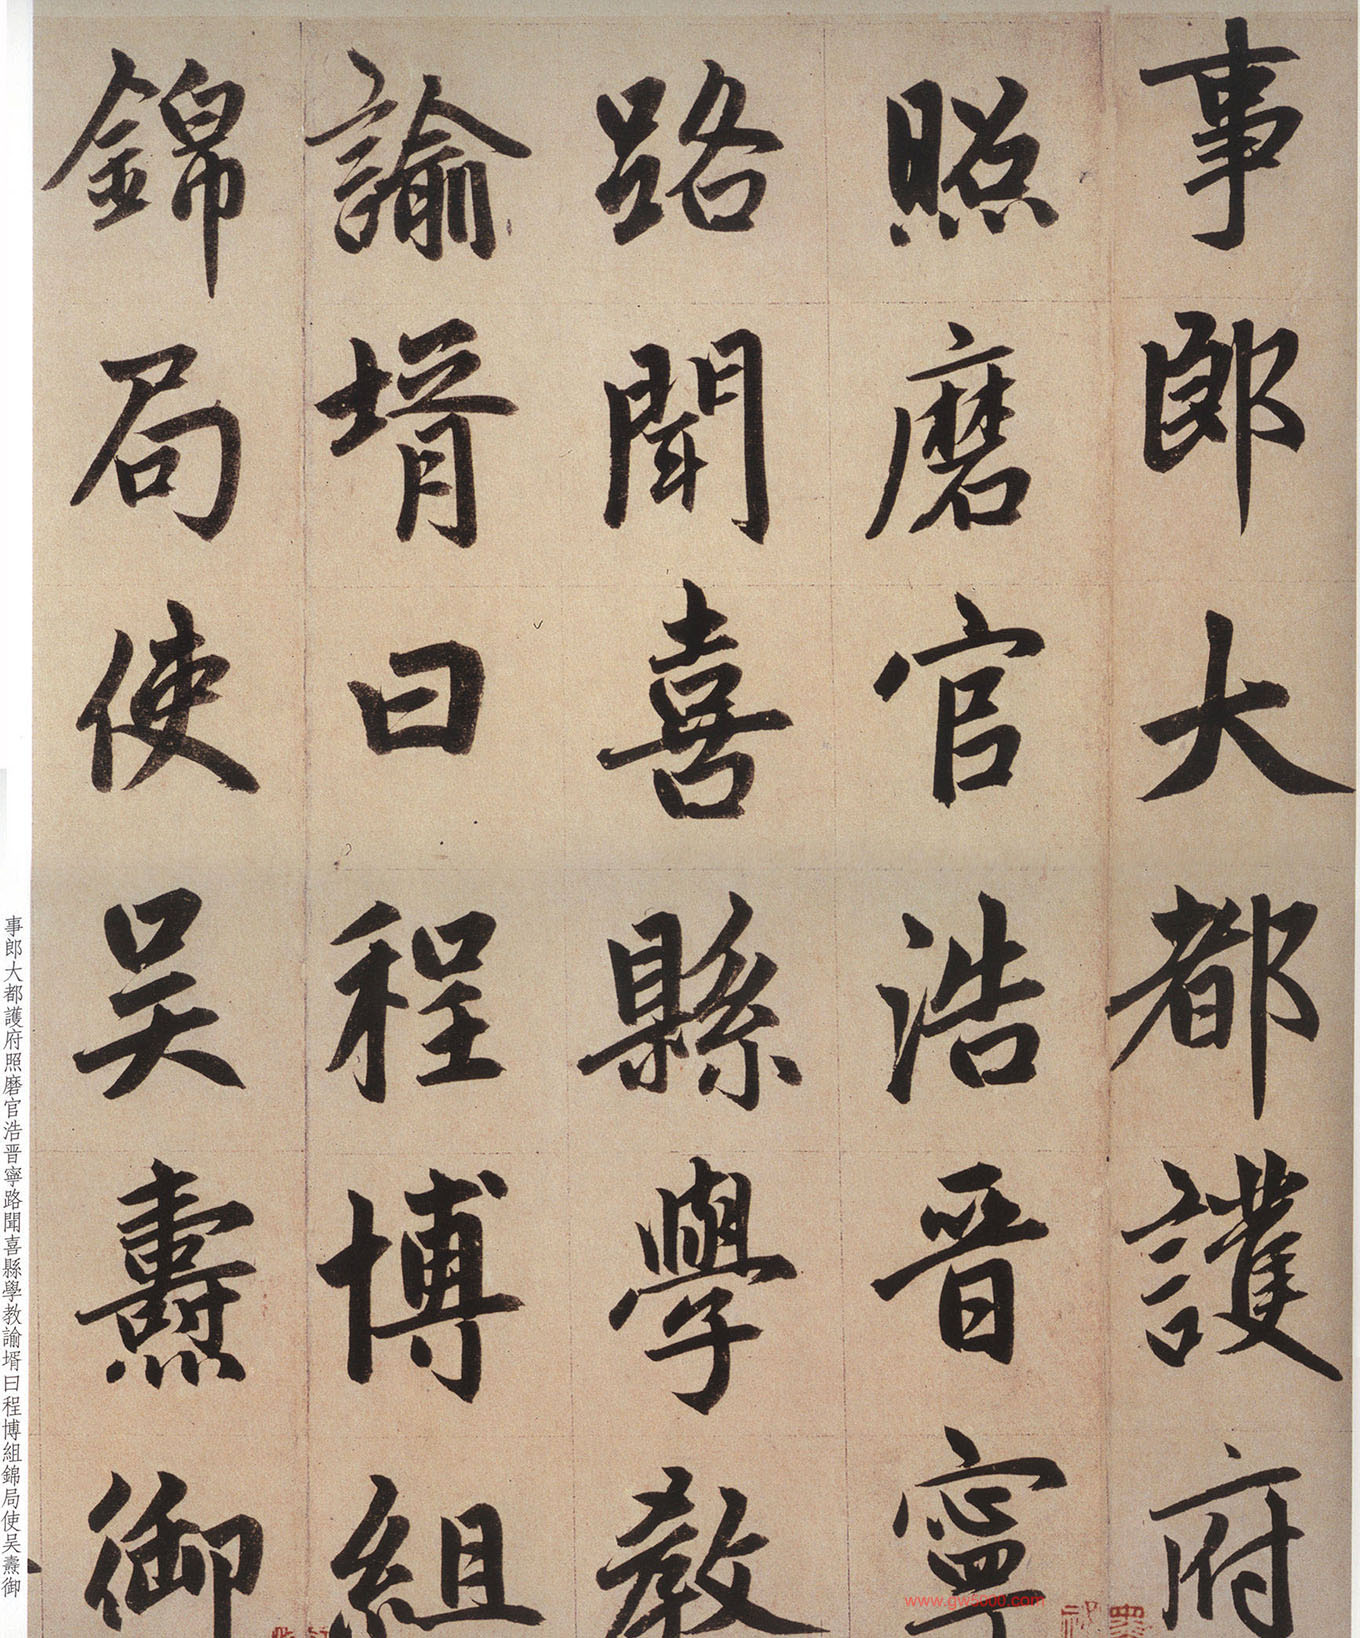 事郎大都護府
照磨官浩晋寧
路聞喜縣學教
諭壻曰程博組
錦局使吴燾御
事郎大都護府照磨官浩晋寧路聞喜縣學教諭壻曰程博組錦局使吴燾御
www.gw5000.com